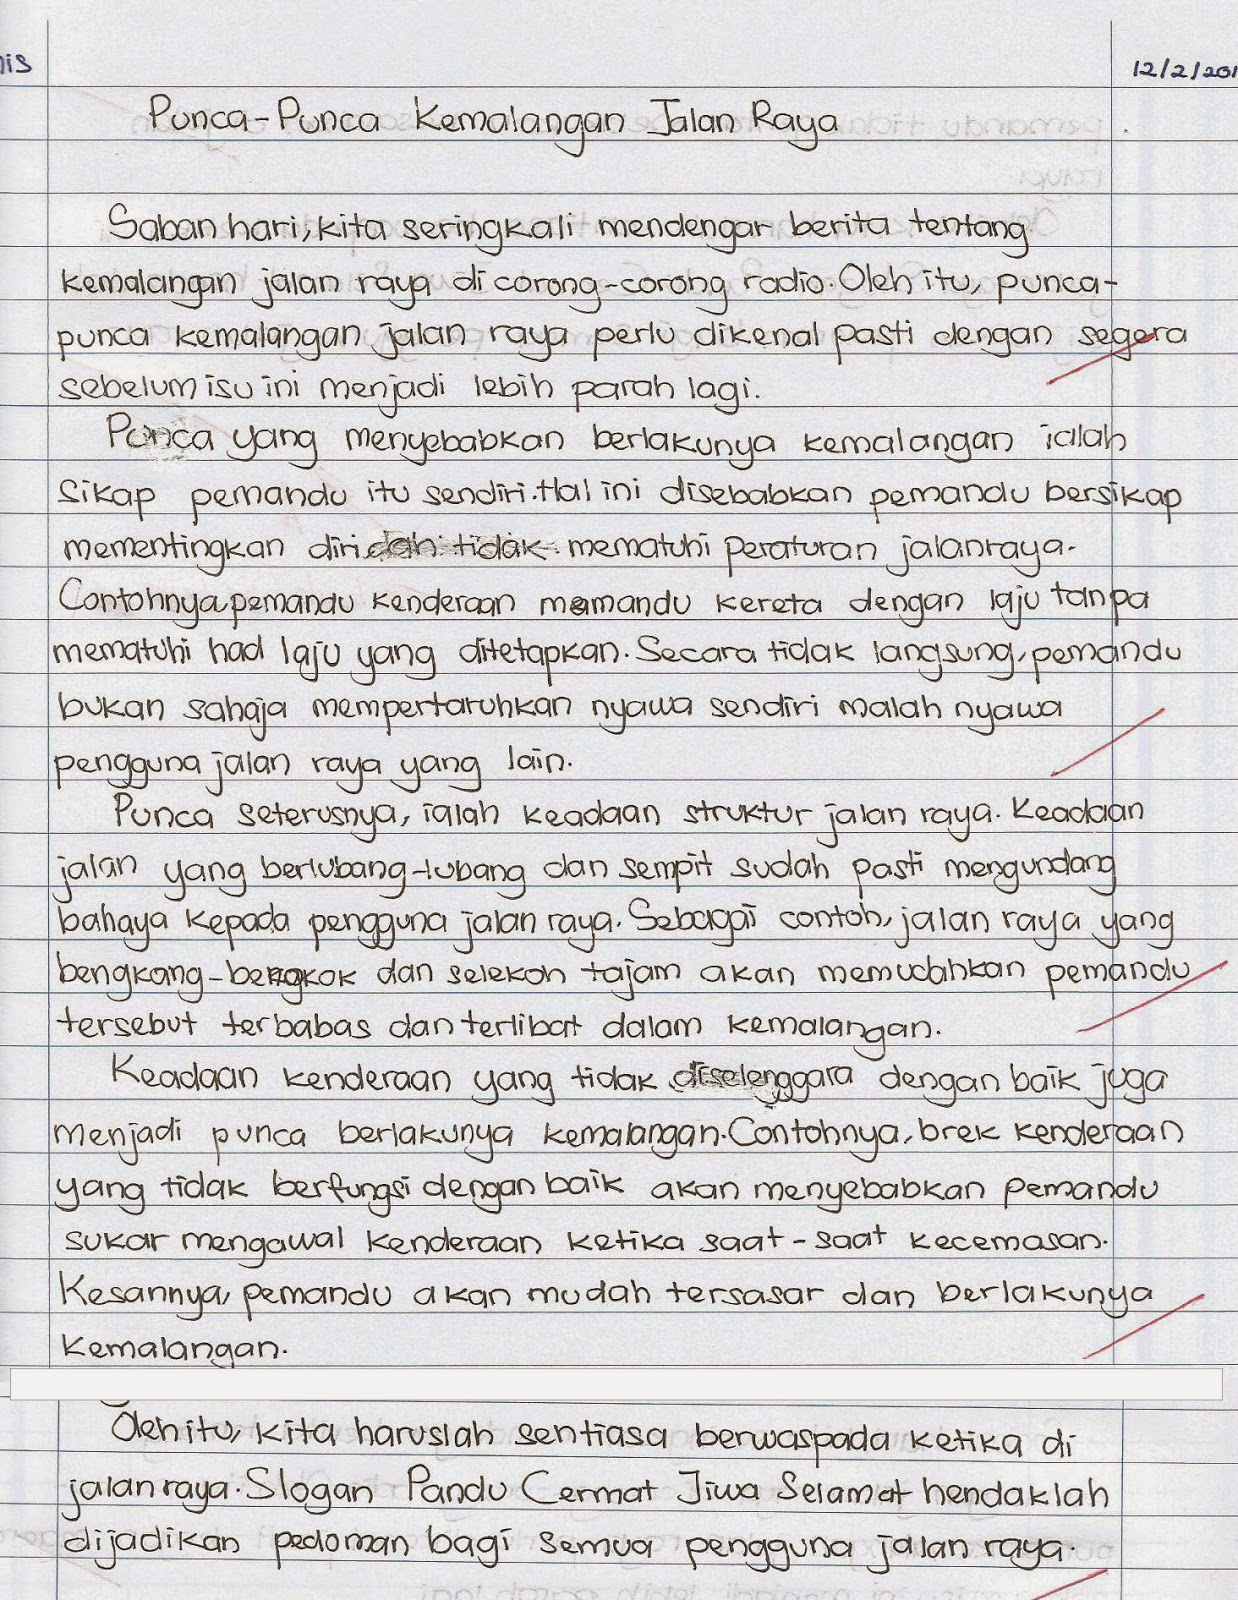 12/2/201
Punca-Punca Kemalangan Jalan Raya
Saban hari, kita seringkali mendengar berita tentang
kemalangan jalan raya di corong-corong radio. Oleh itu, punca-
punca kemalangan jalan raya perlu dikenal pasti dengan segera
sebelum isu ini menjadi lebih parah lagi.
Punca yang menyebabkan berlakunya kemalangan ialah
sikap pemandu itu sendiri. Hal ini disebabkan pemandu bersikap
mementingkan diri dan tidak mematuhi peraturan jalanraya.
Contohnya, pemandu kenderaan memandu kereta dengan laju tanpa
mematuhi had laju yang ditetapkan. Secara tidak langsung, pemandu
bukan sahaja mempertaruhkan nyawa sendiri malah nyawa
pengguna jalan raya yang lain.
Punca seterusnya, ialah keadaan struktur jalan raya. Keadaan
jalan yang berlubang-lubang dan sempit sudah pasti mengundang
bahaya kepada pengguna jalan raya. Sebagai contoh, jalan raya yang
bengkang-bengkok dan selekoh tajam akan memudahkan pemandu
tersebut terbabas dan terlibat dalam kemalangan.
Keadaan kenderaan yang tidak diselenggara dengan baik juga
menjadi punca berlakunya kemalangan. Contohnya, brek kenderaan
yang tidak berfungsi dengan baik akan menyebabkan pemandu
sukar mengawal kenderaan ketika saat-saat kecemasan.
Kesannya, pemandu akan mudah tersasar dan berlakunya
kemalangan.
Oleh itu, kita haruslah sentiasa berwaspada ketika di
jalanraya. Slogan Pandu Cermat Jiwa Selamat hendaklah
dijadikan pedoman bagi semua pengguna jalan raya.